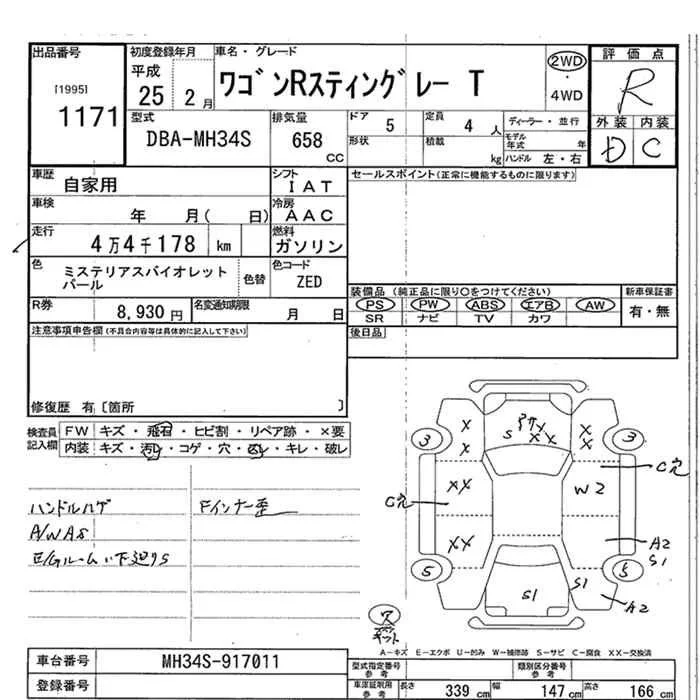 出品番号
[1995]
1171
初度登録年月
平成
25 2 月
車名・グレード
ワゴンRスティングレー T
2WD
・
4WD
評価点
R
外装 内装
D C
型式
DBA-MH34S
排気量
658
CC
ドア 5
定員 4 人
形状
積載 kg
ディーラー・並行
モデル年式 年
ハンドル 左・右
車歴 自家用
シフト IAT
車検 年 月( 日)
冷房 AAC
走行 4万4千178 km
燃料 ガソリン
色 ミステリアスバイオレット
パール
色替
色コード ZED
R券 8,930 円
名変通知期限 月 日
注意事項申告欄(不具合内容等は具体的に記入して下さい)
修復歴 有〔箇所 〕
セールスポイント(正常に機能するものに限ります)
装備品(純正品に限り○をつけてください)
PS PW ABS エアB AW
SR ナビ TV カワ
新車保証書
有・無
後日品
検査員
記入欄
FW キズ・飛石・ヒビ割・リペア跡・×要
内装 キズ・汚れ・コゲ・穴・・キレ・破レ
ハンドルハゲ
A/W AS
E/Gルーム 下廻りS
Fインナー歪
3
3
5
5
X
X
S
X X
X
X
XX
XX
W2
C穴
C穴
A2
S1
S1
S1
A2
欠
キット
A-キズ E-エクボ U-凹み W-補修跡 S-サビ C-腐食 XX-交換済
車台番号 MH34S-917011
登録番号
型式指定番号
参考
類別区分番号
参考
車庫証明用
参考
長さ 339 cm
幅 147 cm
高さ 166 cm